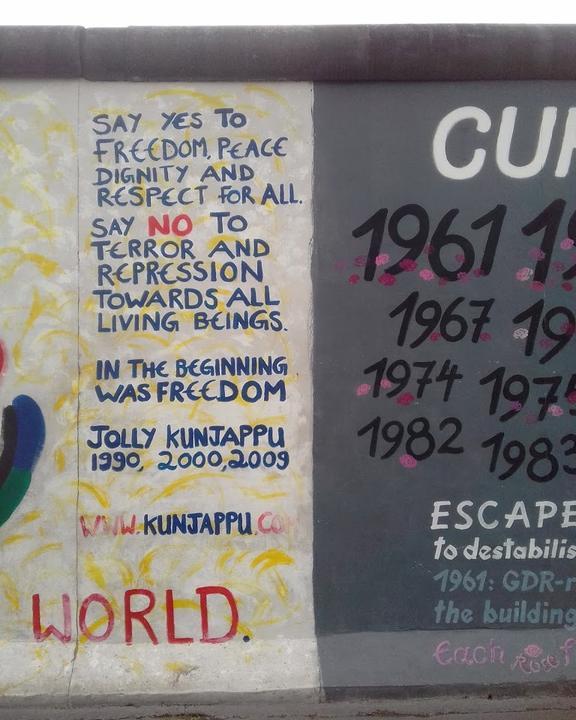 SAY YES TO
FREEDOM, PEACE
DIGNITY AND
RESPECT FOR ALL.
SAY NO TO
TERROR AND
REPRESSION
TOWARDS ALL
LIVING BEINGS.
IN THE BEGINNING
WAS FREEDOM
JOLLY KUNJAPPU
1990, 2000, 2009
WWW.KUNJAPPU.CO
WORLD.
CU
1961 19
1967 19
1974 1975
1982 1983
ESCAPE
to destabilis
1961: GDR-r
the building
Each Rose f